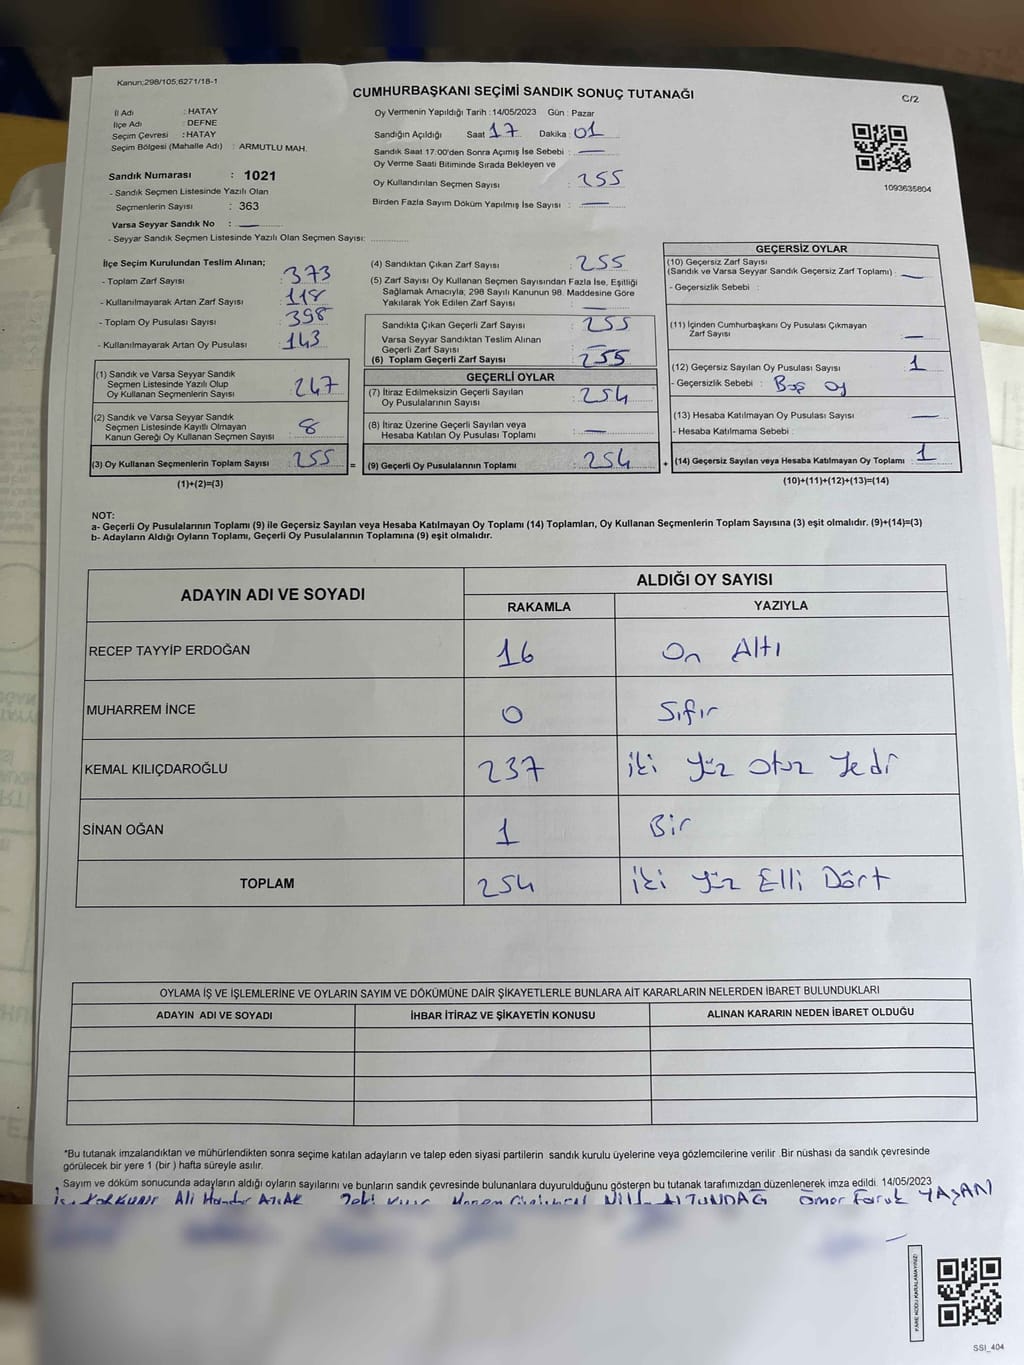 Kanun:298/105,6271/18-1
CUMHURBAŞKANI SEÇİMİ SANDIK SONUÇ TUTANAĞI
C/2
İl Adı : HATAY
İlçe Adı : DEFNE
Seçim Çevresi : HATAY
Seçim Bölgesi (Mahalle Adı) : ARMUTLU MAH.
Sandık Numarası : 1021
- Sandık Seçmen Listesinde Yazılı Olan
Seçmenlerin Sayısı : 363
Varsa Seyyar Sandık No : —
- Seyyar Sandık Seçmen Listesinde Yazılı Olan Seçmen Sayısı:
Oy Vermenin Yapıldığı Tarih : 14/05/2023 Gün : Pazar
Sandığın Açıldığı Saat 17 Dakika : 01
Sandık Saat 17:00'den Sonra Açımış İse Sebebi : —
Oy Verme Saati Bitiminde Sırada Bekleyen ve
Oy Kullandırılan Seçmen Sayısı : 255
Birden Fazla Sayım Döküm Yapılmış İse Sayısı : —
1093635804
İlçe Seçim Kurulundan Teslim Alınan;
- Toplam Zarf Sayısı : 373
- Kullanılmayarak Artan Zarf Sayısı : 118
- Toplam Oy Pusulası Sayısı : 398
- Kullanılmayarak Artan Oy Pusulası : 143
(1) Sandık ve Varsa Seyyar Sandık
Seçmen Listesinde Yazılı Olup
Oy Kullanan Seçmenlerin Sayısı : 247
(2) Sandık ve Varsa Seyyar Sandık
Seçmen Listesinde Kayıtlı Olmayan
Kanun Gereği Oy Kullanan Seçmen Sayısı : 8
(3) Oy Kullanan Seçmenlerin Toplam Sayısı : 255 =
(1)+(2)=(3)
(4) Sandıktan Çıkan Zarf Sayısı : 255
(5) Zarf Sayısı Oy Kullanan Seçmen Sayısından Fazla İse, Eşitliği
Sağlamak Amacıyla; 298 Sayılı Kanunun 98. Maddesine Göre
Yakılarak Yok Edilen Zarf Sayısı : —
Sandıkta Çıkan Geçerli Zarf Sayısı : 255
Varsa Seyyar Sandıktan Teslim Alınan
Geçerli Zarf Sayısı : —
(6) Toplam Geçerli Zarf Sayısı : 255
GEÇERLİ OYLAR
(7) İtiraz Edilmeksizin Geçerli Sayılan
Oy Pusulalarının Sayısı : 254
(8) İtiraz Üzerine Geçerli Sayılan veya
Hesaba Katılan Oy Pusulası Toplamı : —
(9) Geçerli Oy Pusulalarının Toplamı : 254 +
GEÇERSİZ OYLAR
(10) Geçersiz Zarf Sayısı
(Sandık ve Varsa Seyyar Sandık Geçersiz Zarf Toplamı) : —
- Geçersizlik Sebebi :
(11) İçinden Cumhurbaşkanı Oy Pusulası Çıkmayan
Zarf Sayısı : —
(12) Geçersiz Sayılan Oy Pusulası Sayısı : 1
- Geçersizlik Sebebi : Boş oy
(13) Hesaba Katılmayan Oy Pusulası Sayısı : —
- Hesaba Katılmama Sebebi :
(14) Geçersiz Sayılan veya Hesaba Katılmayan Oy Toplamı : 1
(10)+(11)+(12)+(13)=(14)
NOT:
a- Geçerli Oy Pusulalarının Toplamı (9) ile Geçersiz Sayılan veya Hesaba Katılmayan Oy Toplamı (14) Toplamları, Oy Kullanan Seçmenlerin Toplam Sayısına (3) eşit olmalıdır. (9)+(14)=(3)
b- Adayların Aldığı Oyların Toplamı, Geçerli Oy Pusulalarının Toplamına (9) eşit olmalıdır.
ADAYIN ADI VE SOYADI
ALDIĞI OY SAYISI
RAKAMLA YAZIYLA
RECEP TAYYİP ERDOĞAN 16 On Altı
MUHARREM İNCE 0 Sıfır
KEMAL KILIÇDAROĞLU 237 iki yüz otuz Yedi
SİNAN OĞAN 1 Bir
TOPLAM 254 iki yüz Elli Dört
OYLAMA İŞ VE İŞLEMLERİNE VE OYLARIN SAYIM VE DÖKÜMÜNE DAİR ŞİKAYETLERLE BUNLARA AİT KARARLARIN NELERDEN İBARET BULUNDUKLARI
ADAYIN ADI VE SOYADI İHBAR İTİRAZ VE ŞİKAYETİN KONUSU ALINAN KARARIN NEDEN İBARET OLDUĞU
*Bu tutanak imzalandıktan ve mühürlendikten sonra seçime katılan adayların ve talep eden siyasi partilerin sandık kurulu üyelerine veya gözlemcilerine verilir .Bir nüshası da sandık çevresinde
görülecek bir yere 1 (bir ) hafta süreyle asılır.
Sayım ve döküm sonucunda adayların aldığı oyların sayılarını ve bunların sandık çevresinde bulunanlara duyurulduğunu gösteren bu tutanak tarafımızdan düzenlenerek imza edildi. 14/05/2023
Ali ALTUNDAĞ Ömer Faruk YAŞAN
KARE KODU KARALAMAYINIZ!
SSI_404